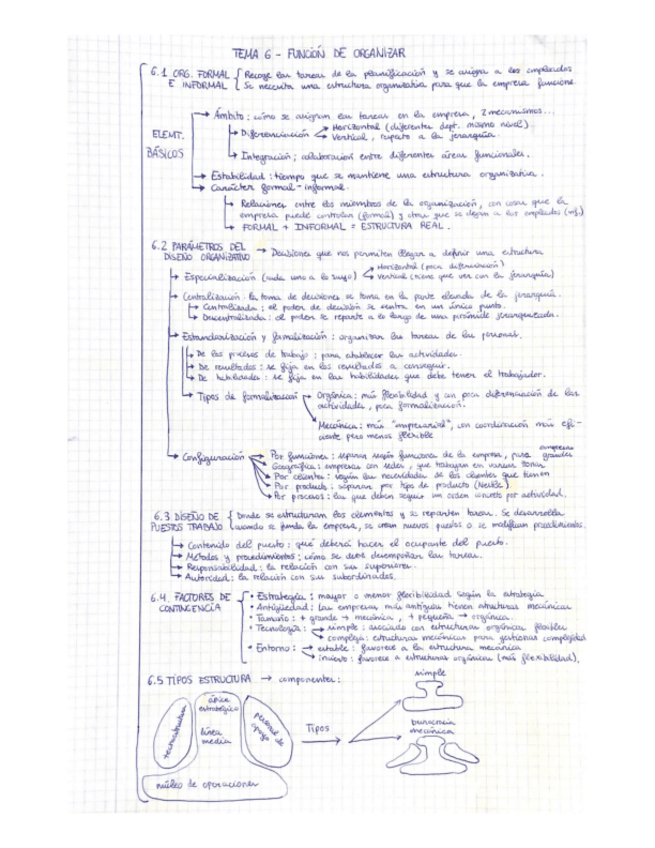 TEMA 6 - FUNCIÓN DE ORGANIZAR
6.1 ORG. FORMAL E INFORMAL
Recoge las tareas de la planificación y se asigna a los empleados
Se necesita una estructura organizativa para que la empresa funcione
ELEMT. BÁSICOS
Ámbito: cómo se asignan las tareas en la empresa, 2 mecanismos...
Diferenciación
Horizontal (diferentes dept. mismo nivel).
Vertical, respeto a la jerarquía.
Integración; colaboración entre diferentes áreas funcionales.
Estabilidad: tiempo que se mantiene una estructura organizativa.
Carácter formal-informal.
Relaciones entre los miembros de la organización, con cosas que la
empresa puede controlar (formal) y otras que se dejan a los empleados (inf.)
FORMAL + INFORMAL = ESTRUCTURA REAL.
6.2 PARÁMETROS DEL DISEÑO ORGANIZATIVO
Decisiones que nos permiten llegar a definir una estructura
Especialización (cada uno a lo suyo)
Horizontal (poca diferenciación)
Vertical (tiene que ver con la jerarquía)
Centralización: la toma de decisiones se toma en la parte elevada de la jerarquía.
Centralizada: el poder de decisión se centra en un único punto.
Descentralizada: el poder se reparte a lo largo de una pirámide jerarquizada.
Estandarización y formalización: organizar las tareas de las personas.
De los procesos de trabajo: para establecer las actividades.
De resultados: se fija en los resultados a conseguir.
De habilidades: se fija en las habilidades que debe tener el trabajador.
Tipos de formalización
Orgánica: más flexibilidad y con poca diferenciación de las
actividades, poca formalización.
Mecánica: más "empresarial", con coordinación más efi-
ciente pero menos flexible
Configuración
Por funciones: separan según funciones de la empresa, para empresas grandes
Geográfica: empresas con sedes, que trabajan en varias zonas
Por clientes: según las necesidades de los clientes que tienen
Por producto: separan por tipos de producto (Nestlé)
Por procesos: las que deben seguir un orden concreto por actividad.
6.3 DISEÑO DE PUESTOS TRABAJO
Donde se estructuran los elementos y se reparten tareas. Se desarrolla
cuando se funda la empresa, se crean nuevos puestos o se modifican procedimientos.
Contenido del puesto: qué deberá hacer el ocupante del puesto.
Métodos y procedimientos: cómo se debe desempeñar las tareas.
Responsabilidad: la relación con sus superiores.
Autoridad: la relación con sus subordinados.
6.4. FACTORES DE CONTINGENCIA
• Estrategia: mayor o menor flexibilidad según la estrategia
• Antigüedad: las empresas más antiguas tienen estructuras mecánicas
• Tamaño: + grande → mecánica, + pequeña → orgánica.
• Tecnología: simple: asociado con estructuras orgánicas flexibles
compleja: estructuras mecánicas para gestionar complejidad
• Entorno: → estable: favorece a la estructura mecánica
incierto: favorece a estructuras orgánicas (más flexibilidad).
6.5 TIPOS ESTRUCTURA → componentes:
simple
ápice estratégico
tecnoestructura
línea media
personal de apoyo
Tipos
burocracia mecánica
núcleo de operaciones